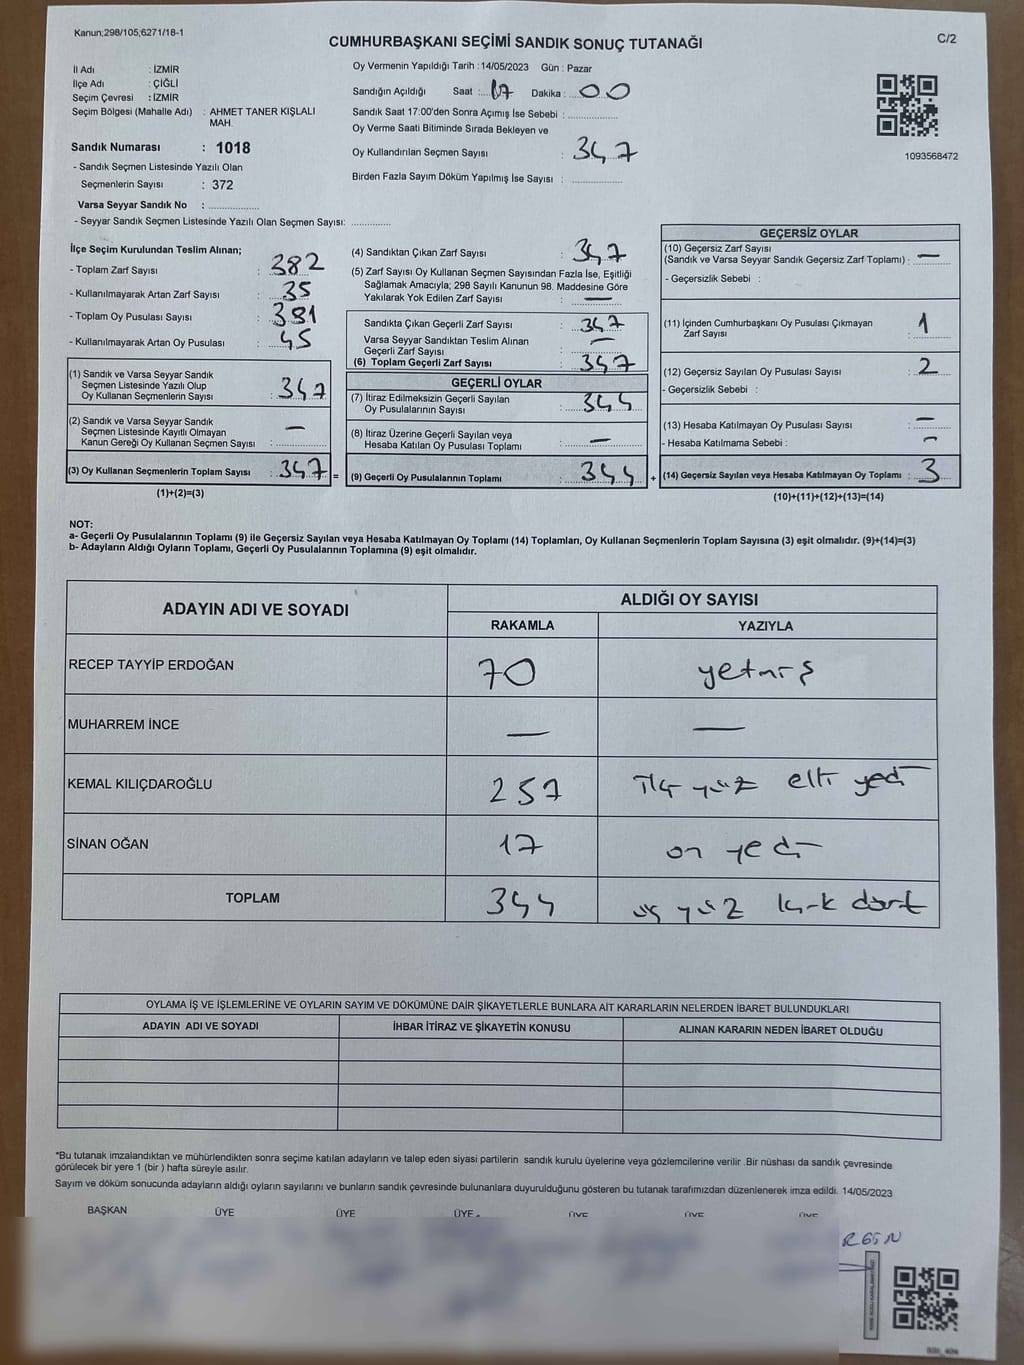 Kanun;298/105;6271/18-1
CUMHURBAŞKANI SEÇİMİ SANDIK SONUÇ TUTANAĞI
C/2
İl Adı : İZMİR
İlçe Adı : ÇİĞLİ
Seçim Çevresi : İZMİR
Seçim Bölgesi (Mahalle Adı) : AHMET TANER KIŞLALI
MAH.
Sandık Numarası : 1018
- Sandık Seçmen Listesinde Yazılı Olan
Seçmenlerin Sayısı : 372
Varsa Seyyar Sandık No : ..............
- Seyyar Sandık Seçmen Listesinde Yazılı Olan Seçmen Sayısı: ............
Oy Vermenin Yapıldığı Tarih :14/05/2023 Gün : Pazar
Sandığın Açıldığı Saat :17 Dakika : 00
Sandık Saat 17:00'den Sonra Açımış İse Sebebi : ...............
Oy Verme Saati Bitiminde Sırada Bekleyen ve
Oy Kullandırılan Seçmen Sayısı : 347
Birden Fazla Sayım Döküm Yapılmış İse Sayısı : ...............
1093568472
İlçe Seçim Kurulundan Teslim Alınan;
- Toplam Zarf Sayısı : 382
- Kullanılmayarak Artan Zarf Sayısı : 35
- Toplam Oy Pusulası Sayısı : 391
- Kullanılmayarak Artan Oy Pusulası : 45
(1) Sandık ve Varsa Seyyar Sandık
Seçmen Listesinde Yazılı Olup
Oy Kullanan Seçmenlerin Sayısı : 347
(2) Sandık ve Varsa Seyyar Sandık
Seçmen Listesinde Kayıtlı Olmayan
Kanun Gereği Oy Kullanan Seçmen Sayısı : —
(3) Oy Kullanan Seçmenlerin Toplam Sayısı : 347 =
(1)+(2)=(3)
(4) Sandıktan Çıkan Zarf Sayısı : 347
(5) Zarf Sayısı Oy Kullanan Seçmen Sayısından Fazla İse, Eşitliği
Sağlamak Amacıyla; 298 Sayılı Kanunun 98. Maddesine Göre
Yakılarak Yok Edilen Zarf Sayısı : —
Sandıkta Çıkan Geçerli Zarf Sayısı : 347
Varsa Seyyar Sandıktan Teslim Alınan
Geçerli Zarf Sayısı : —
(6) Toplam Geçerli Zarf Sayısı : 347
GEÇERLİ OYLAR
(7) İtiraz Edilmeksizin Geçerli Sayılan
Oy Pusulalarının Sayısı : 344
(8) İtiraz Üzerine Geçerli Sayılan veya
Hesaba Katılan Oy Pusulası Toplamı : —
(9) Geçerli Oy Pusulalarının Toplamı : 344 +
GEÇERSİZ OYLAR
(10) Geçersiz Zarf Sayısı
(Sandık ve Varsa Seyyar Sandık Geçersiz Zarf Toplamı) : —
- Geçersizlik Sebebi :
(11) İçinden Cumhurbaşkanı Oy Pusulası Çıkmayan
Zarf Sayısı : 1
(12) Geçersiz Sayılan Oy Pusulası Sayısı : 2
- Geçersizlik Sebebi :
(13) Hesaba Katılmayan Oy Pusulası Sayısı : —
- Hesaba Katılmama Sebebi : —
(14) Geçersiz Sayılan veya Hesaba Katılmayan Oy Toplamı : 3
(10)+(11)+(12)+(13)=(14)
NOT:
a- Geçerli Oy Pusulalarının Toplamı (9) ile Geçersiz Sayılan veya Hesaba Katılmayan Oy Toplamı (14) Toplamları, Oy Kullanan Seçmenlerin Toplam Sayısına (3) eşit olmalıdır. (9)+(14)=(3)
b- Adayların Aldığı Oyların Toplamı, Geçerli Oy Pusulalarının Toplamına (9) eşit olmalıdır.
ADAYIN ADI VE SOYADI ALDIĞI OY SAYISI
RAKAMLA YAZIYLA
RECEP TAYYİP ERDOĞAN 70 yetmiş
MUHARREM İNCE — —
KEMAL KILIÇDAROĞLU 257 iki yüz elli yedi
SİNAN OĞAN 17 on yedi
TOPLAM 344 üç yüz kırk dört
OYLAMA İŞ VE İŞLEMLERİNE VE OYLARIN SAYIM VE DÖKÜMÜNE DAİR ŞİKAYETLERLE BUNLARA AİT KARARLARIN NELERDEN İBARET BULUNDUKLARI
ADAYIN ADI VE SOYADI İHBAR İTİRAZ VE ŞİKAYETİN KONUSU ALINAN KARARIN NEDEN İBARET OLDUĞU
*Bu tutanak imzalandıktan ve mühürlendikten sonra seçime katılan adayların ve talep eden siyasi partilerin sandık kurulu üyelerine veya gözlemcilerine verilir .Bir nüshası da sandık çevresinde
görülecek bir yere 1 (bir ) hafta süreyle asılır.
Sayım ve döküm sonucunda adayların aldığı oyların sayılarını ve bunların sandık çevresinde bulunanlara duyurulduğunu gösteren bu tutanak tarafımızdan düzenlenerek imza edildi. 14/05/2023
BAŞKAN ÜYE ÜYE ÜYE ÜYE ÜYE ÜYE